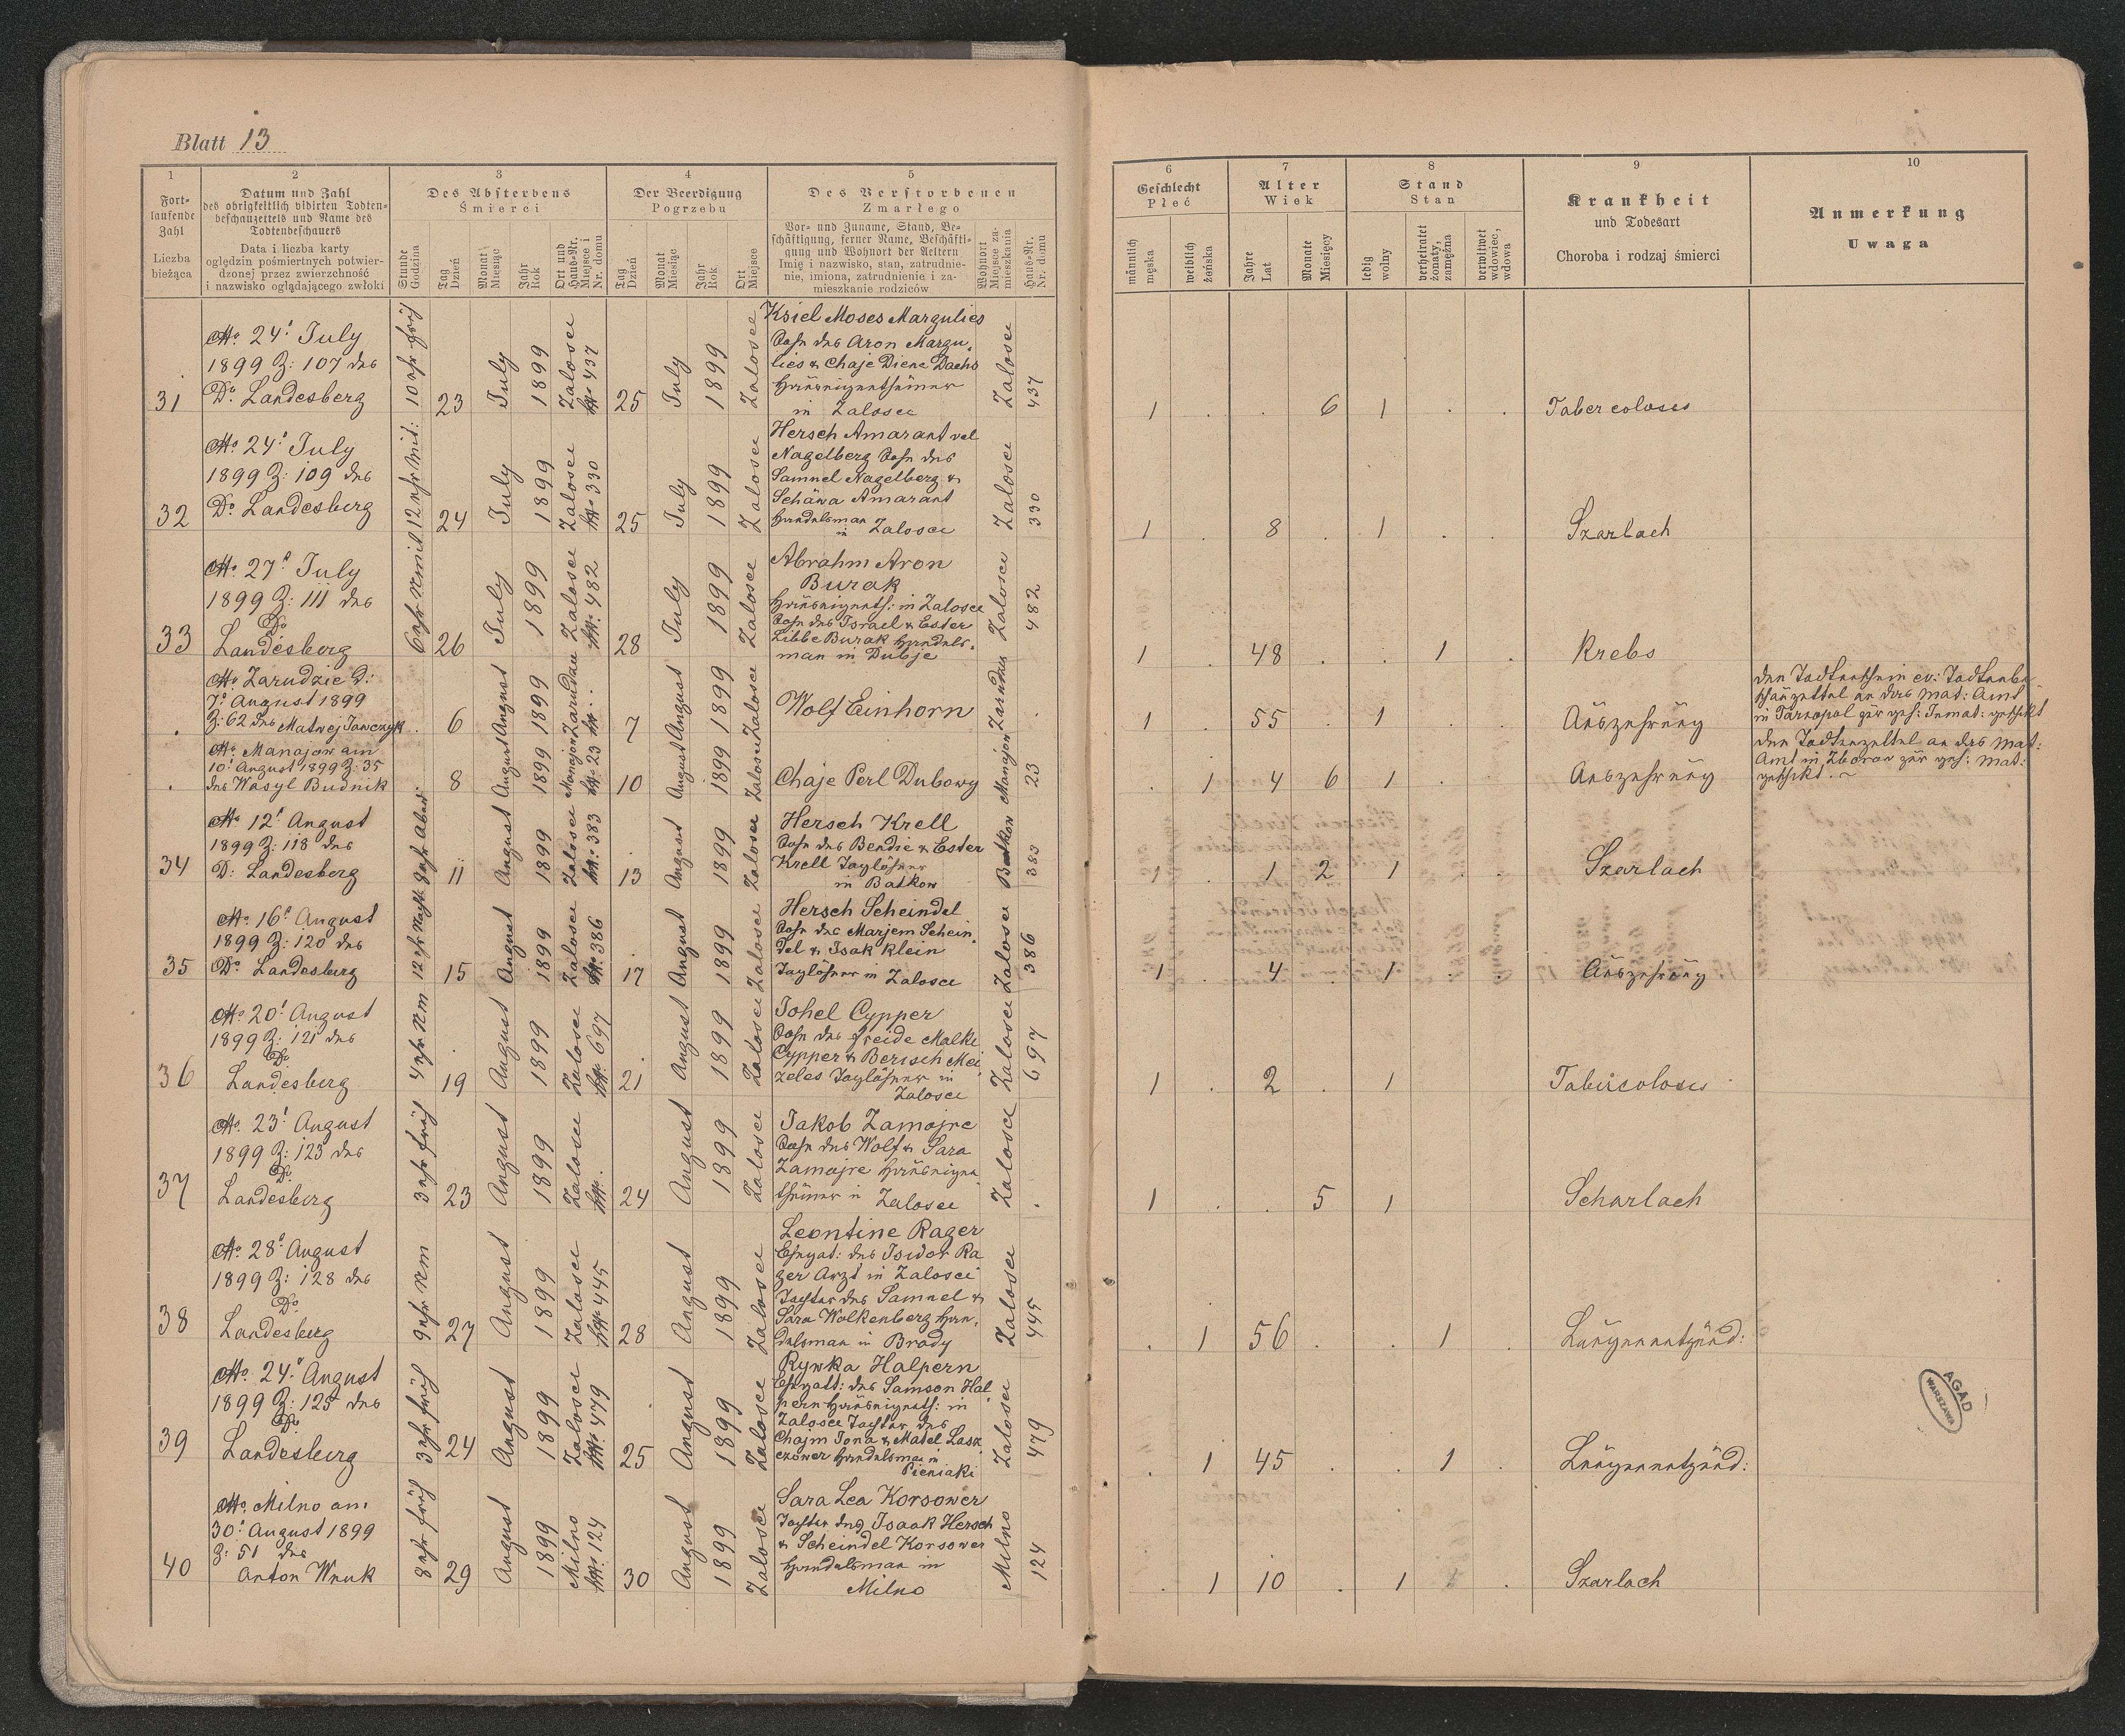 Blatt 13
1
2
3
4
5
Fort-
laufende
Zahl
Liczba
bieżąca
Datum und Zahl
des obrigkeitlich vidirten Todten-
beschauzettels und Name des
Todtenbeschauers
Data i liczba karty
oględzin pośmiertnych potwier-
dzonej przez zwierzchność
i nazwisko oglądającego zwłoki
Des Absterbens
Śmierci
Stunde
Godzina
Tag
Dzień
Monat
Miesiąc
Jahr
Rok
Ort und
Haus-Nr.
Miejsce i
Nr. domu
Der Beerdigung
Pogrzebu
Tag
Dzień
Monat
Miesiąc
Jahr
Rok
Ort
Miejsce
Des Verstorbenen
Zmarłego
Vor- und Zuname, Stand, Be-
schäftigung, ferner Name, Beschäfti-
gung und Wohnort der Aeltern
Imię i nazwisko, stan, zatrudnie-
nie, imiona, zatrudnienie i za-
mieszkanie rodziców
Wohnort
Miejsce za-
mieszkania
Haus-Nr.
Nr. domu
6
7
8
9
10
Geschlecht
Płeć
männlich
męska
weiblich
żeńska
Alter
Wiek
Jahre
Lat
Monate
Miesięcy
Stand
Stan
ledig
wolny
verheiratet
żonaty,
zamężna
verwitwet
wdowiec,
wdowa
Krankheit
und Todesart
Choroba i rodzaj śmierci
Anmerkung
Uwaga
31
24 July
1899 Z: 107 des
Dr. Landesberg
10 uhr früh
23
July
1899
Zalosce
437
25
July
1899
Zalosce
Ksiel Moses Margulies
Sohn des Aron Margu-
lies & Chaje Diene Dachs
Hauseigenthümer
in Zalosce
Zalosce
437
1
6
1
Tabercoloses
32
24 July
1899 Z: 109 des
Dr. Landesberg
12 uhr Mit:
24
July
1899
Zalosce
330
25
July
1899
Zalosce
Hersch Amarant vel
Nagelberg Sohn des
Samuel Nagelberg &
Schäwa Amarant
Handelsman
in Zalosce
Zalosce
330
1
8
1
Szarlach
33
27 July
1899 Z: 111 des
Dr
Landesberg
6 uhr
26
July
1899
Zalosce
482
28
July
1899
Zalosce
Abrahm Aron
Burak
Hauseigenth: in Zalosce
Sohn des Israel & Ester
Libbe Burak Handels-
man in Dubje
Zalosce
482
1
48
1
Krebs
Zarudzie d:
7 August 1899
Z: 62 des Matwej Jawczyk
6
August
1899
Zarudzie
7
August
1899
Zalosce
Wolf Einhorn
Zarudzie
1
55
1
Auszehrung
den Todtenschein ev: Todtenbe
schauzettel an das Mat: Amt
in Tarnopol zur gef: Inmat: geschikt
Manajow am
10 August 1899 Z: 35
des Wasyl Budnik
8
August
1899
Manajow
23
10
August
1899
Zalosce
Chaje Perl Dubowy
Manajow
23
1
4
6
1
Auszehrung
den Todtenzettel an das Mat:
Amt in Zborow zur gef: Mat:
geschikt.
34
12 August
1899 Z: 118 des
D: Landesberg
9 uhr Abend
11
August
1899
Zalosce
383
13
August
1899
Zalosce
Hersch Krell
Sohn des Bendie & Ester
Krell Taglöhner
in Batkow
Batkow
383
1
1
2
1
Szarlach
35
16 August
1899 Z: 120 des
Dr. Landesberg
12 uhr Nacht
15
August
1899
Zalosce
386
17
August
1899
Zalosce
Hersch Scheindel
Sohn des Marjem Schein-
del & Isak Klein
Taglöhner in Zalosce
Zalosce
386
1
4
1
Auszehrung
36
20 August
1899 Z: 121 des
Dr
Landesberg
4 uhr Nm
19
August
1899
Zalosce
697
21
August
1899
Zalosce
Johel Cypper
Sohn des Freide Malke
Cypper & Berisch Mei-
zeles Taglöhner in
Zalosce
Zalosce
697
1
2
1
Tabercoloses
37
23 August
1899 Z: 123 des
Dr.
Landesberg
3 uhr früh
23
August
1899
Zalosce
24
August
1899
Zalosce
Jakob Zamojre
Sohn des Wolf & Sara
Zamojre Hauseigen
thümer in Zalosce
Zalosce
1
5
1
Scharlach
38
28 August
1899 Z: 128 des
Dr.
Landesberg
9 uhr Nm
27
August
1899
Zalosce
445
28
August
1899
Zalosce
Leontine Rager
Ehegat: des Isidor Ra
ger Arzt in Zalosce
Tochter des Samuel &
Sara Wolkenberg Han-
delsman in Brody
Zalosce
445
1
56
1
Lungenentzünd:
39
24 August
1899 Z: 125 des
Dr.
Landesberg
3 uhr früh
24
August
1899
Zalosce
479
25
August
1899
Zalosce
Rywka Halpern
Ehegatt: des Samson Hal-
pern Hauseigenth: in
Zalosce Tochter des
Chajm Jona & Matel Lasz
czower Handelsman in
Pieniaki
Zalosce
479
1
45
1
Lungenentzünd:
40
Milno am
30 August 1899
Z: 51 des
Anton Wnuk
8 uhr früh
29
August
1899
Milno
124
30
August
1899
Zalosce
Sara Lea Korsower
Tochter des Isaak Hersch
& Scheindel Korsower
Handelsman in
Milno
Milno
124
1
10
1
Szarlach
AGAD
WARSZAWA